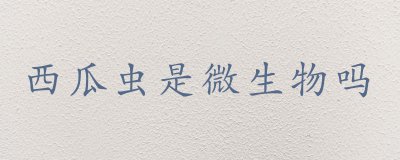 西瓜虫是微生物吗